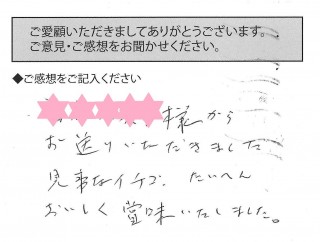 ご愛顧いただきましてありがとうございます。
ご意見・ご感想をお聞かせください。
◆ご感想をご記入ください
様から
お送りいただきました
見事なイチゴ、たいへん
おいしく賞味いたしました。